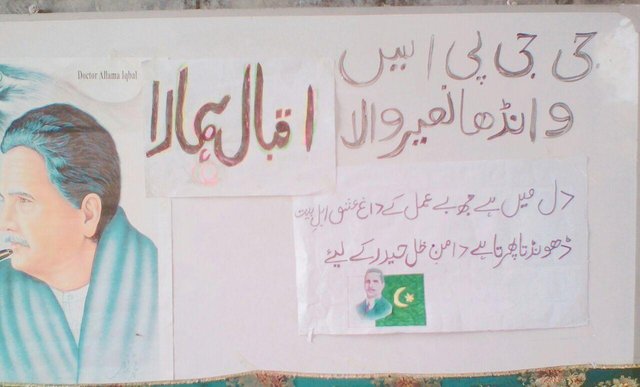 Doctor Allama Iqbal
اقبال ہمارا
جی جی پی ایس
وانڈھا نصیر والا
دل میں ہے مجھ بے عمل کے داغ عشق اہل بیت
ڈھونڈتا پھرتا ہے دامن حیدر کے لیے